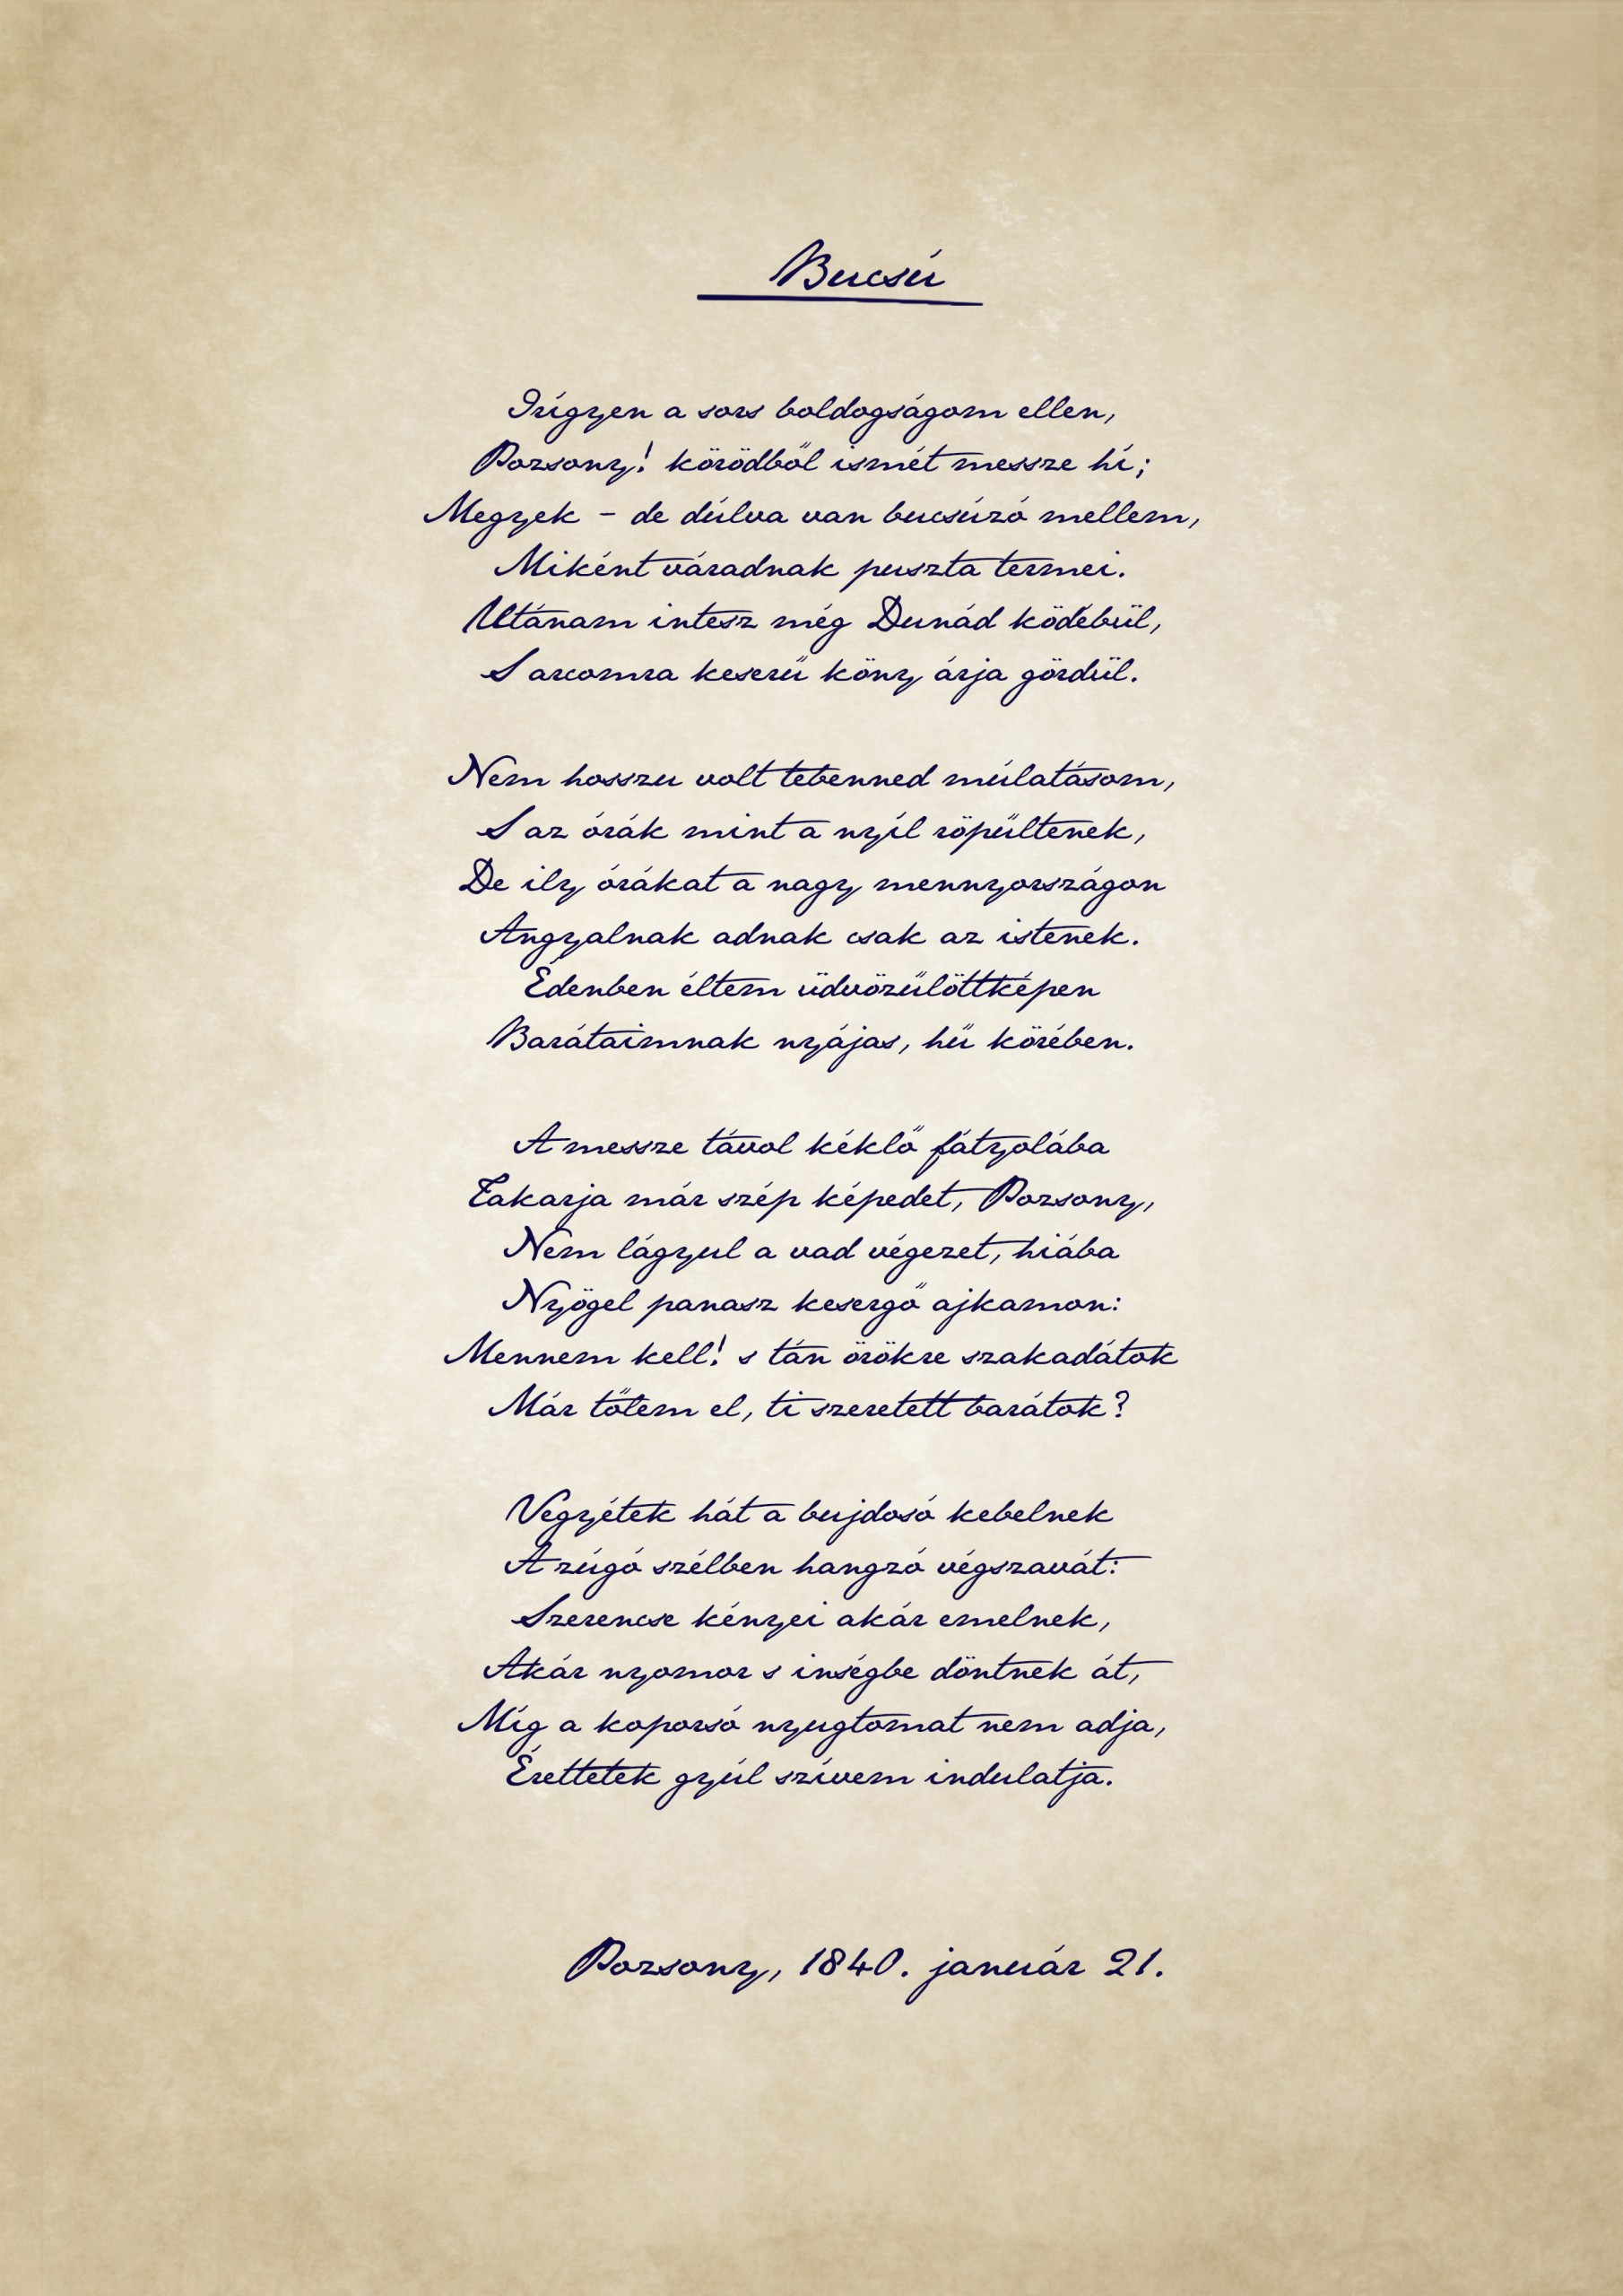 Bucsú
Irígyen a sors boldogságom ellen,
Pozsony! körödből ismét messze hí;
Megyek – de dúlva van bucsúzó mellem,
Miként váradnak puszta termei.
Utánam intesz még Dunád ködébül,
S arcomra keserű köny árja gördül.
Nem hosszu volt tebenned múlatásom,
S az órák mint a nyíl röpűltenek,
De ily órákat a nagy mennyországon
Angyalnak adnak csak az istenek.
Édenben éltem üdvözűlöttképen
Barátaimnak nyájas, hű körében.
A messze távol kéklő fátyolába
Takarja már szép képedet, Pozsony,
Nem lágyul a vad végezet, hiába
Nyögel panasz kesergő ajkamon:
Mennem kell! s tán örökre szakadátok
Már tőlem el, ti szeretett barátok?
Vegyétek hát a bujdosó kebelnek
A zúgó szélben hangzó végszavát:
Szerencse kényei akár emelnek,
Akár nyomor s inségbe döntnek át,
Míg a koporsó nyugtomat nem adja,
Érettetek gyúl szívem indulatja.
Pozsony, 1840. január 21.